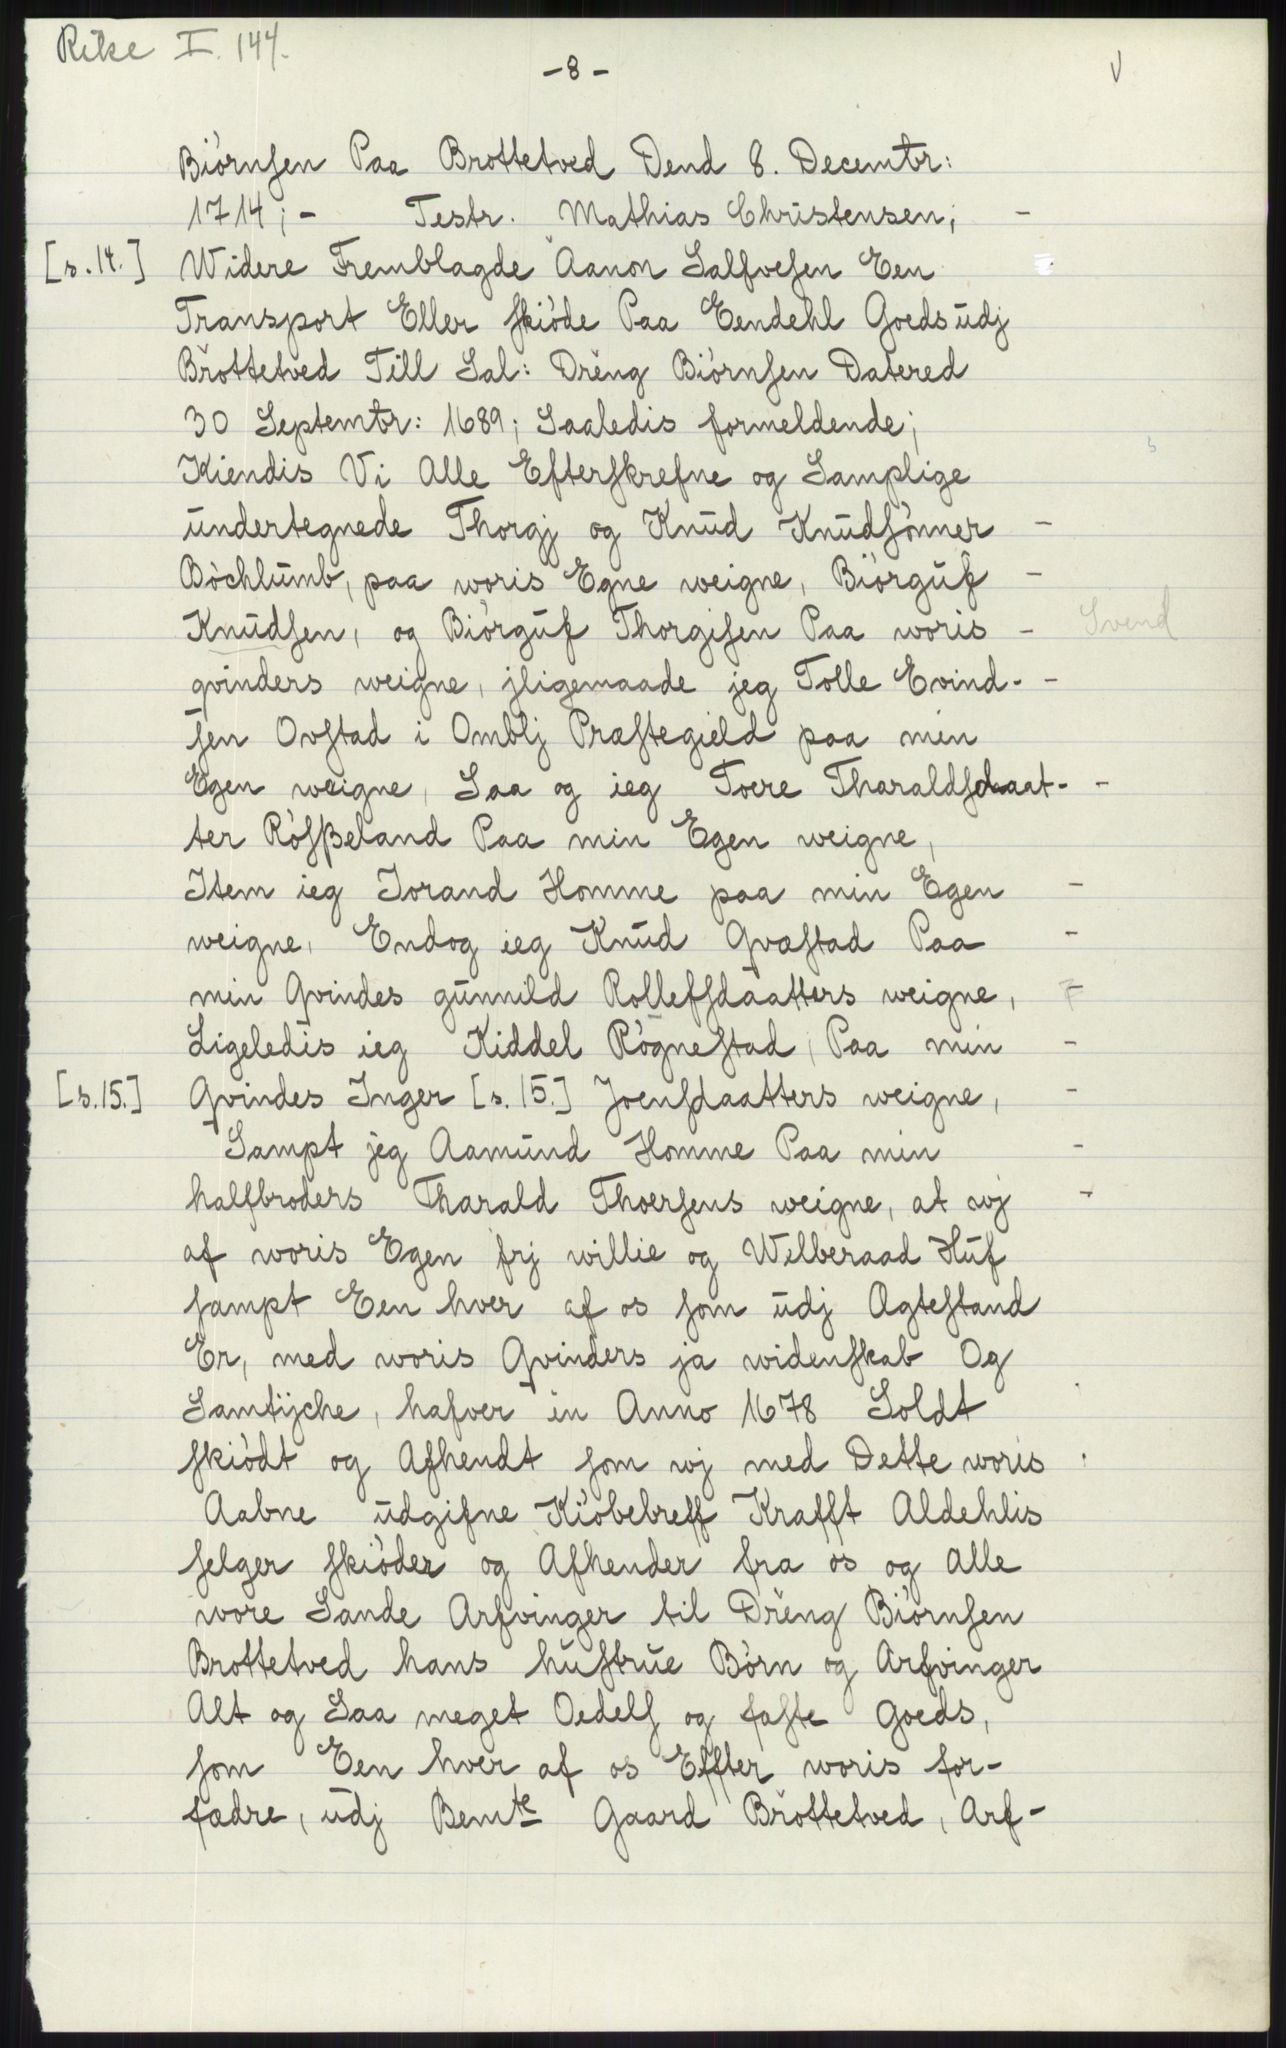 Rike I. 144.
- 8 -
V
Biórnsen Paa Brottetved Dend 8. Decembr:
1714; - Testr. Mathias Christensen; -
[s. 14.] Widere Fremblagde Aanon Salfvesen Een
Transport Eller skióde Paa Eendehl Goeds udj
Brottetved Till Sal: Dreng Biórnsen Datered
30 Septembr: 1689; Saaledis formeldende;
Kiendis Vi Alle Efterskrefne og Samplige
undertegnede Thorgj og Knud Knudsónner -
Bóchlumb, paa woris Egne weigne, Biórguf -
Knudsen, og Biórguf Thorgisen Paa woris - Svend
qvinders weigne, jligemaade jeg Tolle Evind- -
sen Ovstad i Omblj Præstegield paa min
Egen weigne, Saa og ieg Toere Tharaldsdaat- -
ter Rósßeland Paa min Egen weigne,
Item ieg Jorand Homme paa min Egen -
weigne, Endog ieg Knud Qvastad Paa -
min Qvindes gunnild Rollefsdaatters weigne, F
Ligeledis ieg Kiddel Rógnestad, Paa min -
[s. 15.] Qvindes Inger [s. 15.] Joensdaatters weigne, -
Sampt jeg Aamund Homme Paa min -
halfbroders Tharald Thoersens weigne, at wj -
af woris Egen frj willie og Welberaad Huf
sampt Een hver af os som udj Ægtestand
Er, med woris Qvinders ja widenskab Og
Samtijche, hafver in Anno 1678 Soldt
skiódt og Afhendt som wj med Dette woris
Aabne udgifne Kióbebreff Krafft Aldehlis
selger skióder og Afhender fra os og Alle
wore Sande Arfvinger til Dreng Biórnsen
Brottetved hans hustrue Bórn og Arfvinger
Alt og Saa meget Oedels og faste Goeds,
som Een hver af os Effter woris for-
fædre, udj Bemte Gaard Brottetved, Arf-